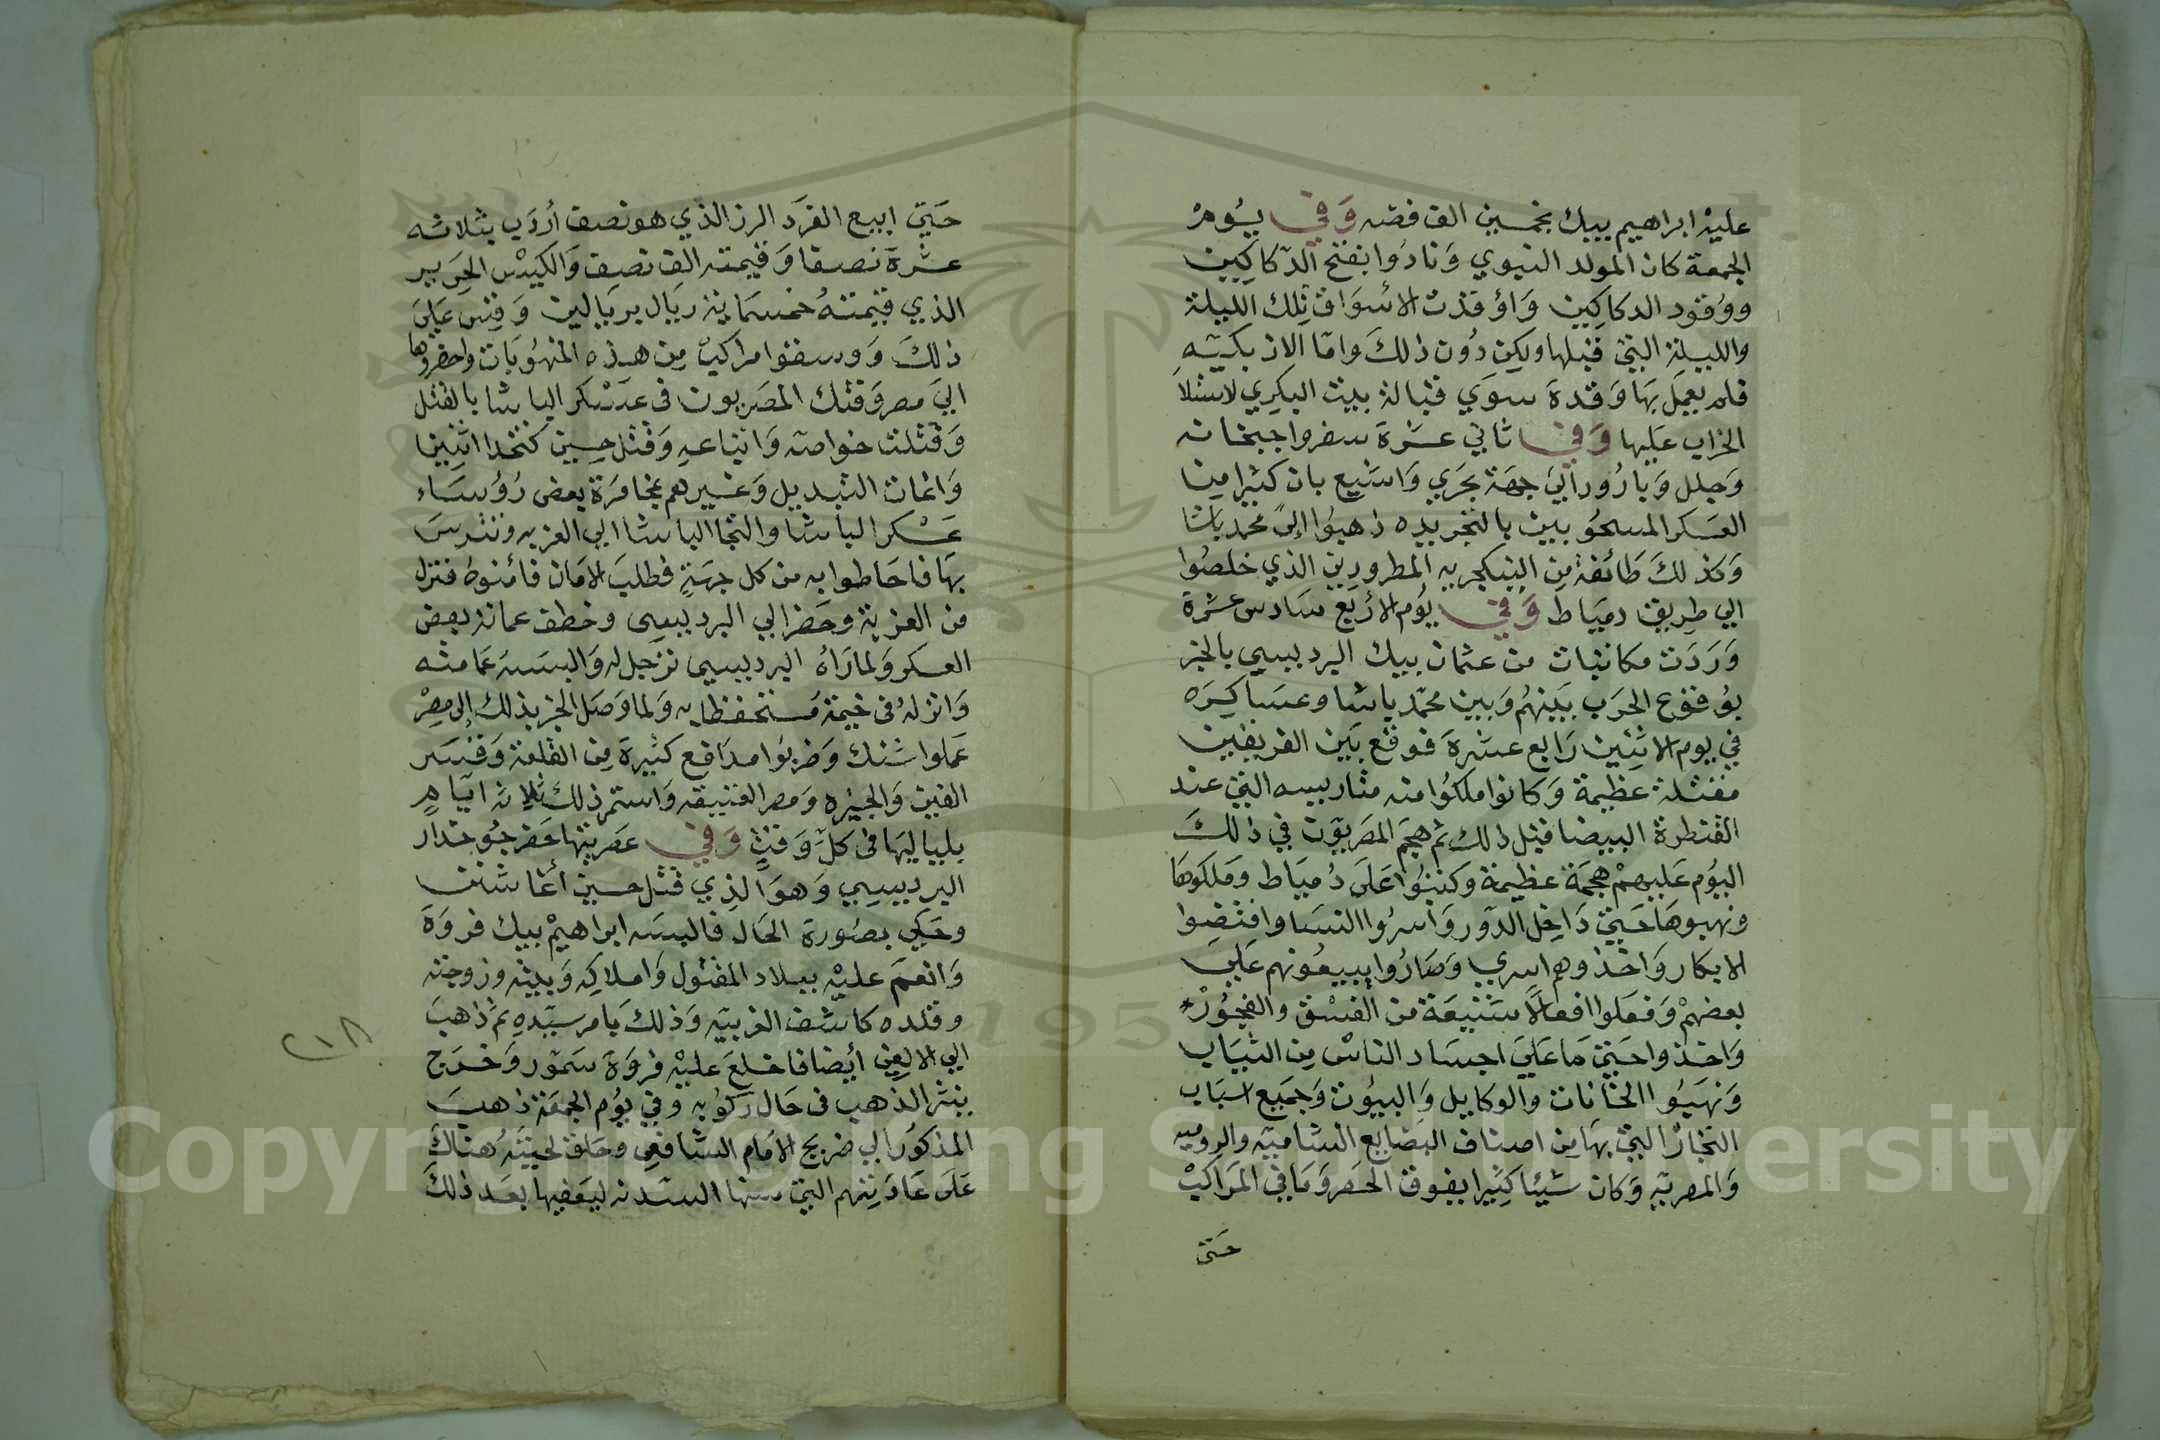 عليه ابراهيم بيك بخمسين الف فضه وفي يوم
الجمعة كان المولد النبوي ونادوا بفتح الدكاكين
ووقود الدكاكين واوقدت الاسواق تلك الليلة
والليلة التي قبلها ولكن دون ذلك واما الازبكيه
فلم يعمل بها وقدة سوي قبالة بيت البكري لاستلا
الخراب عليها وفي ثاني عشرة سفروا جبخانه
وجلل وبارود الي جهة بحري واشيع بان كثيرا من
العسكر المسحوبين بالتجريده ذهبوا الى محمد باشا
وكذلك طائفة من الينكجريه المطرودين الذي خلصوا
الي طريق دمياط وفي يوم الاربع سادس عشرة
وردت مكاتبات من عثمان بيك البرديسي بالخبر
بوقوع الحرب بينهم وبين محمد باشا وعساكره
في يوم الاثنين رابع عشرة فوقع بين الفريقين
مقتلة عظيمة وكانوا ملكوا منه متاريسه التي عند
القنطرة البيضا قبل ذلك ثم هجم المصريون في ذلك
اليوم عليهم هجمة عظيمة وكبسوا على دمياط وملكوها
ونهبوها حتي داخل الدور واسروا النسا وافتضوا
الابكار واخذوهم اسري وصاروا يبيعونهم علي
بعضهم وفعلوا افعالا شنيعة من الفسق والفجور
واخذوا حتي ما علي اجساد الناس من الثياب
ونهبوا الخانات والوكايل والبيوت وجميع اسباب
التجار التي بها من اصناف البضايع الشاميه والروميه
والمصريه وكان شيئا كثيرا يفوق الحصر وما في المراكب
حتى
حتي ابيع الفرد الرز الذي هو نصف أردب بثلاثه
عشرة نصفا وقيمته الف نصف والكيس الحرير
الذي قيمته خمسماية ريال بريالين وقس على
ذلك ووسقوا مراكب من هذه المنهوبات واحضروها
الي مصر وفتك المصريون في عسكر الباشا بالقتل
وقتلت خواصه واتباعه وقتل حسين كتخدا اثنين
واغات التبديل وغيرهم بمخامرة بعض رؤساء
عسكر الباشا والتجا الباشا الي القريه وتترس
بها فاحاطوا به من كل جهة فطلب الامان فأمنوه فنزل
من القرية وحضر الي البرديسي وخطف عمامته بعض
العسكر ولما راه البرديسي ترجل له والبسه عمامته
وانزله في خيمة مستحفظا به ولما وصل الخبر بذلك إلى مصر
عملوا شنك وضربوا مدافع كثيرة من القلعة وقصر
العين والجيزه ومصر العتيقه واستمر ذلك ثلاثه ايام
بلياليها في كل وقت وفي عصريتها حضر جوخدار
البرديسي وهو الذي قتل حسين أغا شنن
وحكي بصورة الحال فالبسه ابراهيم بيك فروة
وانعم عليه ببلاد المقتول واملاكه وبيته وزوجته
وقلده كاشف الغربيه وذلك بامر سيده ثم ذهب
الي الالفي أيضا فاخلع عليه فروة سمور وخرج
ينثر الذهب في حال ركوبه وفي يوم الجمعة ذهب
المذكور الي ضريح الامام الشافعي وحلق لحيته هناك
على عادتهم التي سنها السدنه ليعفيها بعد ذلك
٢١٨
Copyright © King Saud University
195